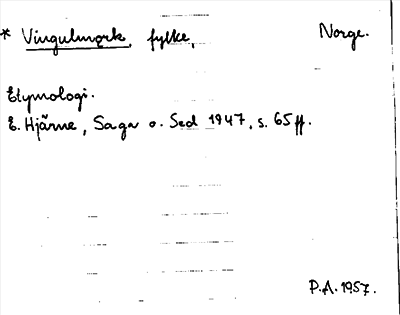 * Vingulmǫrk, fylke, Norge.
Etymologi.
E. Hjärne, Saga o. Sed 1947, s. 65 ff.
P.A. 1957.